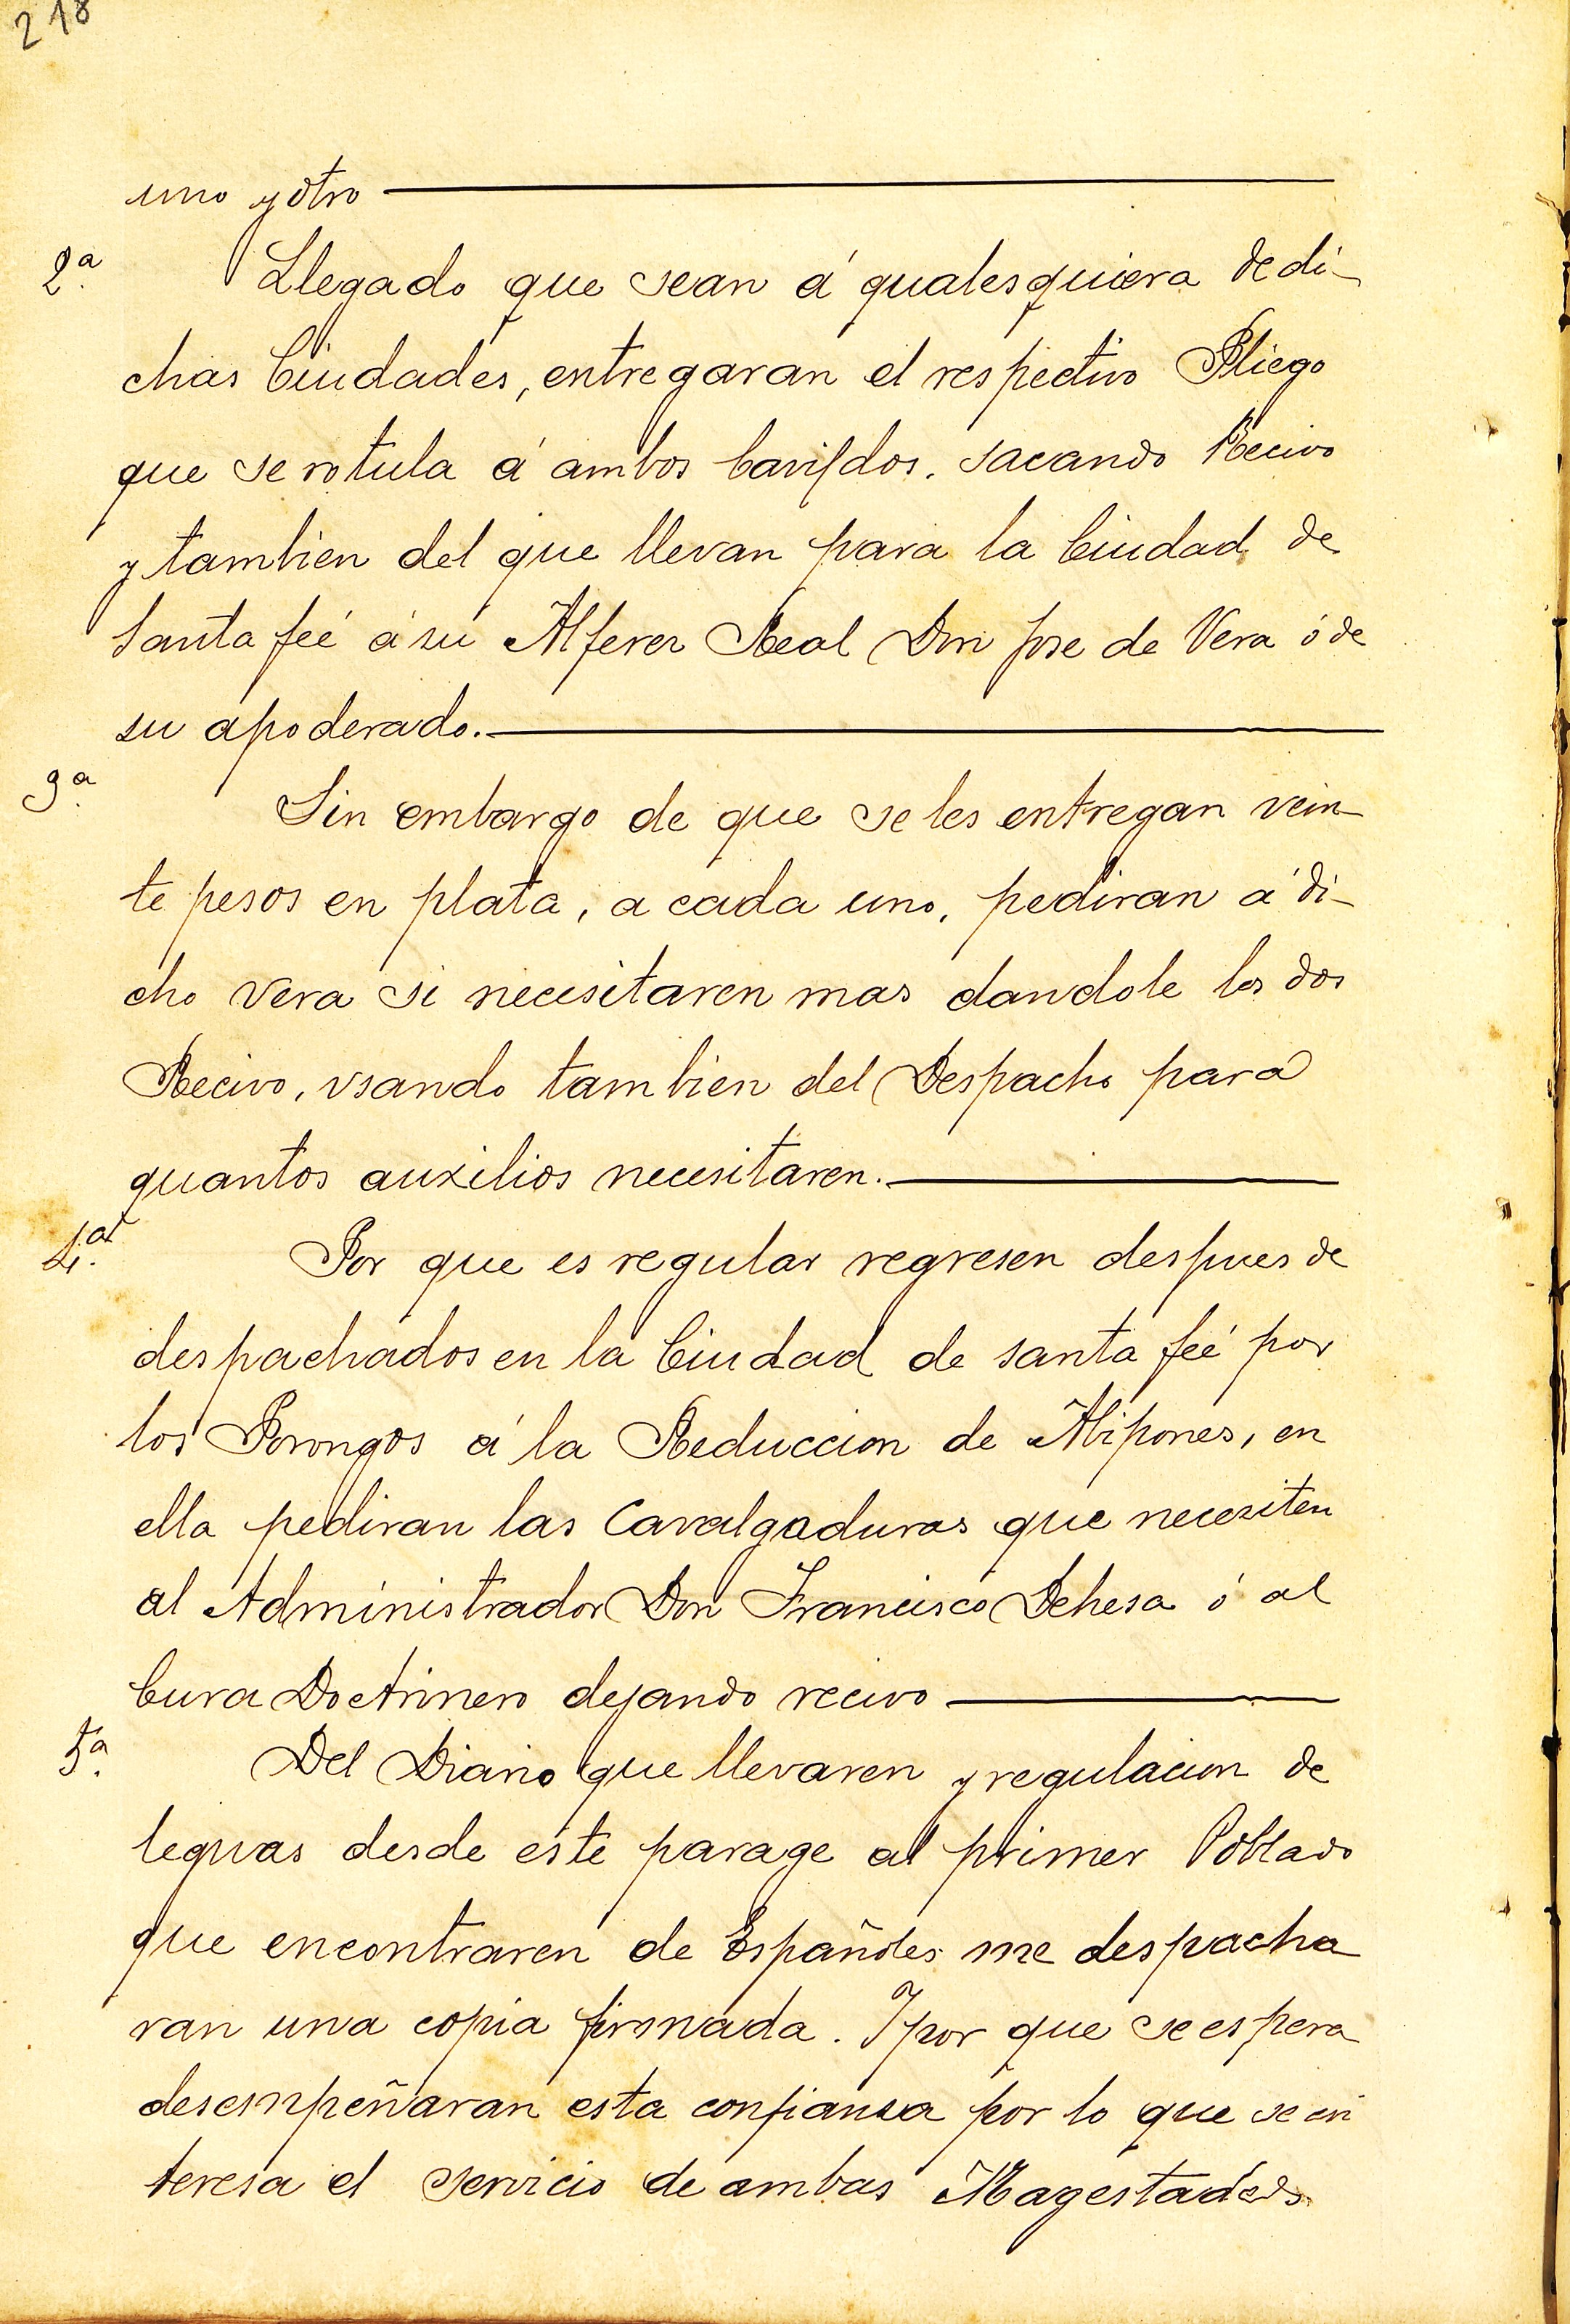 218
uno y otro
2ª. Llegado que sean á qualesquiera de di-
chas Ciudades, entregaran el respectivo Pliego
que se rotula á ambos Cavildos, sacando Recivo
y tambien del que llevan para la Ciudad de
Santa feé á su Alferez Real Don Jose de Vera ó de
su apoderado.
3ª. Sin embargo de que se les entregan vein-
te pesos en plata, a cada uno, pediran á di-
cho Vera si necesitaren mas dandole los dos
Recivo, vsando tambien del Despacho para
quantos auxilios necesitaren.
4ª. Por que es regular regresen despues de
despachados en la Ciudad de santa feé por
los Porongos á la Reduccion de Abipones, en
ella pediran las Cavalgaduras que necesiten
al Administrador Don Francisco Dehesa ó al
Cura Doctrinero dejando recivo
5ª. Del Diario que llevaren y regulacion de
leguas desde este parage al primer Poblado
que encontraren de Españoles me despacha
ran una copia firmada. Y por que se espera
desempeñaran esta confianza por lo que se in
teresa el servicio de ambas Magestades